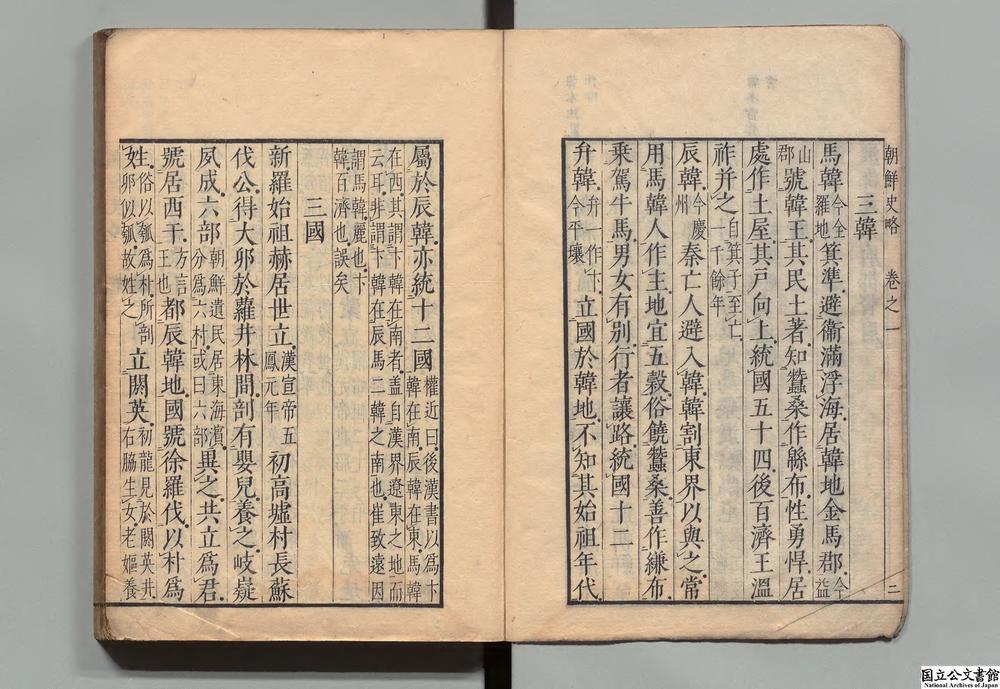 朝鮮史略　卷之一　二
三韓
馬韓今全羅地箕準避衛滿浮海居韓地金馬郡今益
山郡號韓王其民土著知蠶桑作緜布性勇悍居
處作土屋其戶向上統國五十四後百濟王溫
祚并之自箕子至亡一千餘年
辰韓今慶州秦亡人避入韓韓割東界以與之常
用馬韓人作主地宜五穀俗饒蠶桑善作縑布
乘駕牛馬男女有別行者讓路統國十二
弁韓弁一作卞今平壤立國於韓地不知其始祖年代
屬於辰韓亦統十二國權近曰後漢書以爲卞韓在南辰韓在東馬韓
在西其謂卞韓在南者盖自漢界遼東之地而云耳非謂卞韓在辰馬二韓之南也崔致遠因
謂馬韓麗也卞韓百濟也誤矣
三國
新羅始祖赫居世立漢宣帝五鳳元年初高墟村長蘇
伐公得大卵於蘿井林間剖有嬰兒養之岐嶷
夙成六部朝鮮遺民居東海濱分爲六村或曰六部異之共立爲君
號居西干方言王也都辰韓地國號徐羅伐以朴爲
姓俗以瓠爲朴所剖卵似瓠故姓之立閼英初龍見於閼英井右脇生女老嫗養
国立公文書館
National Archives of Japan